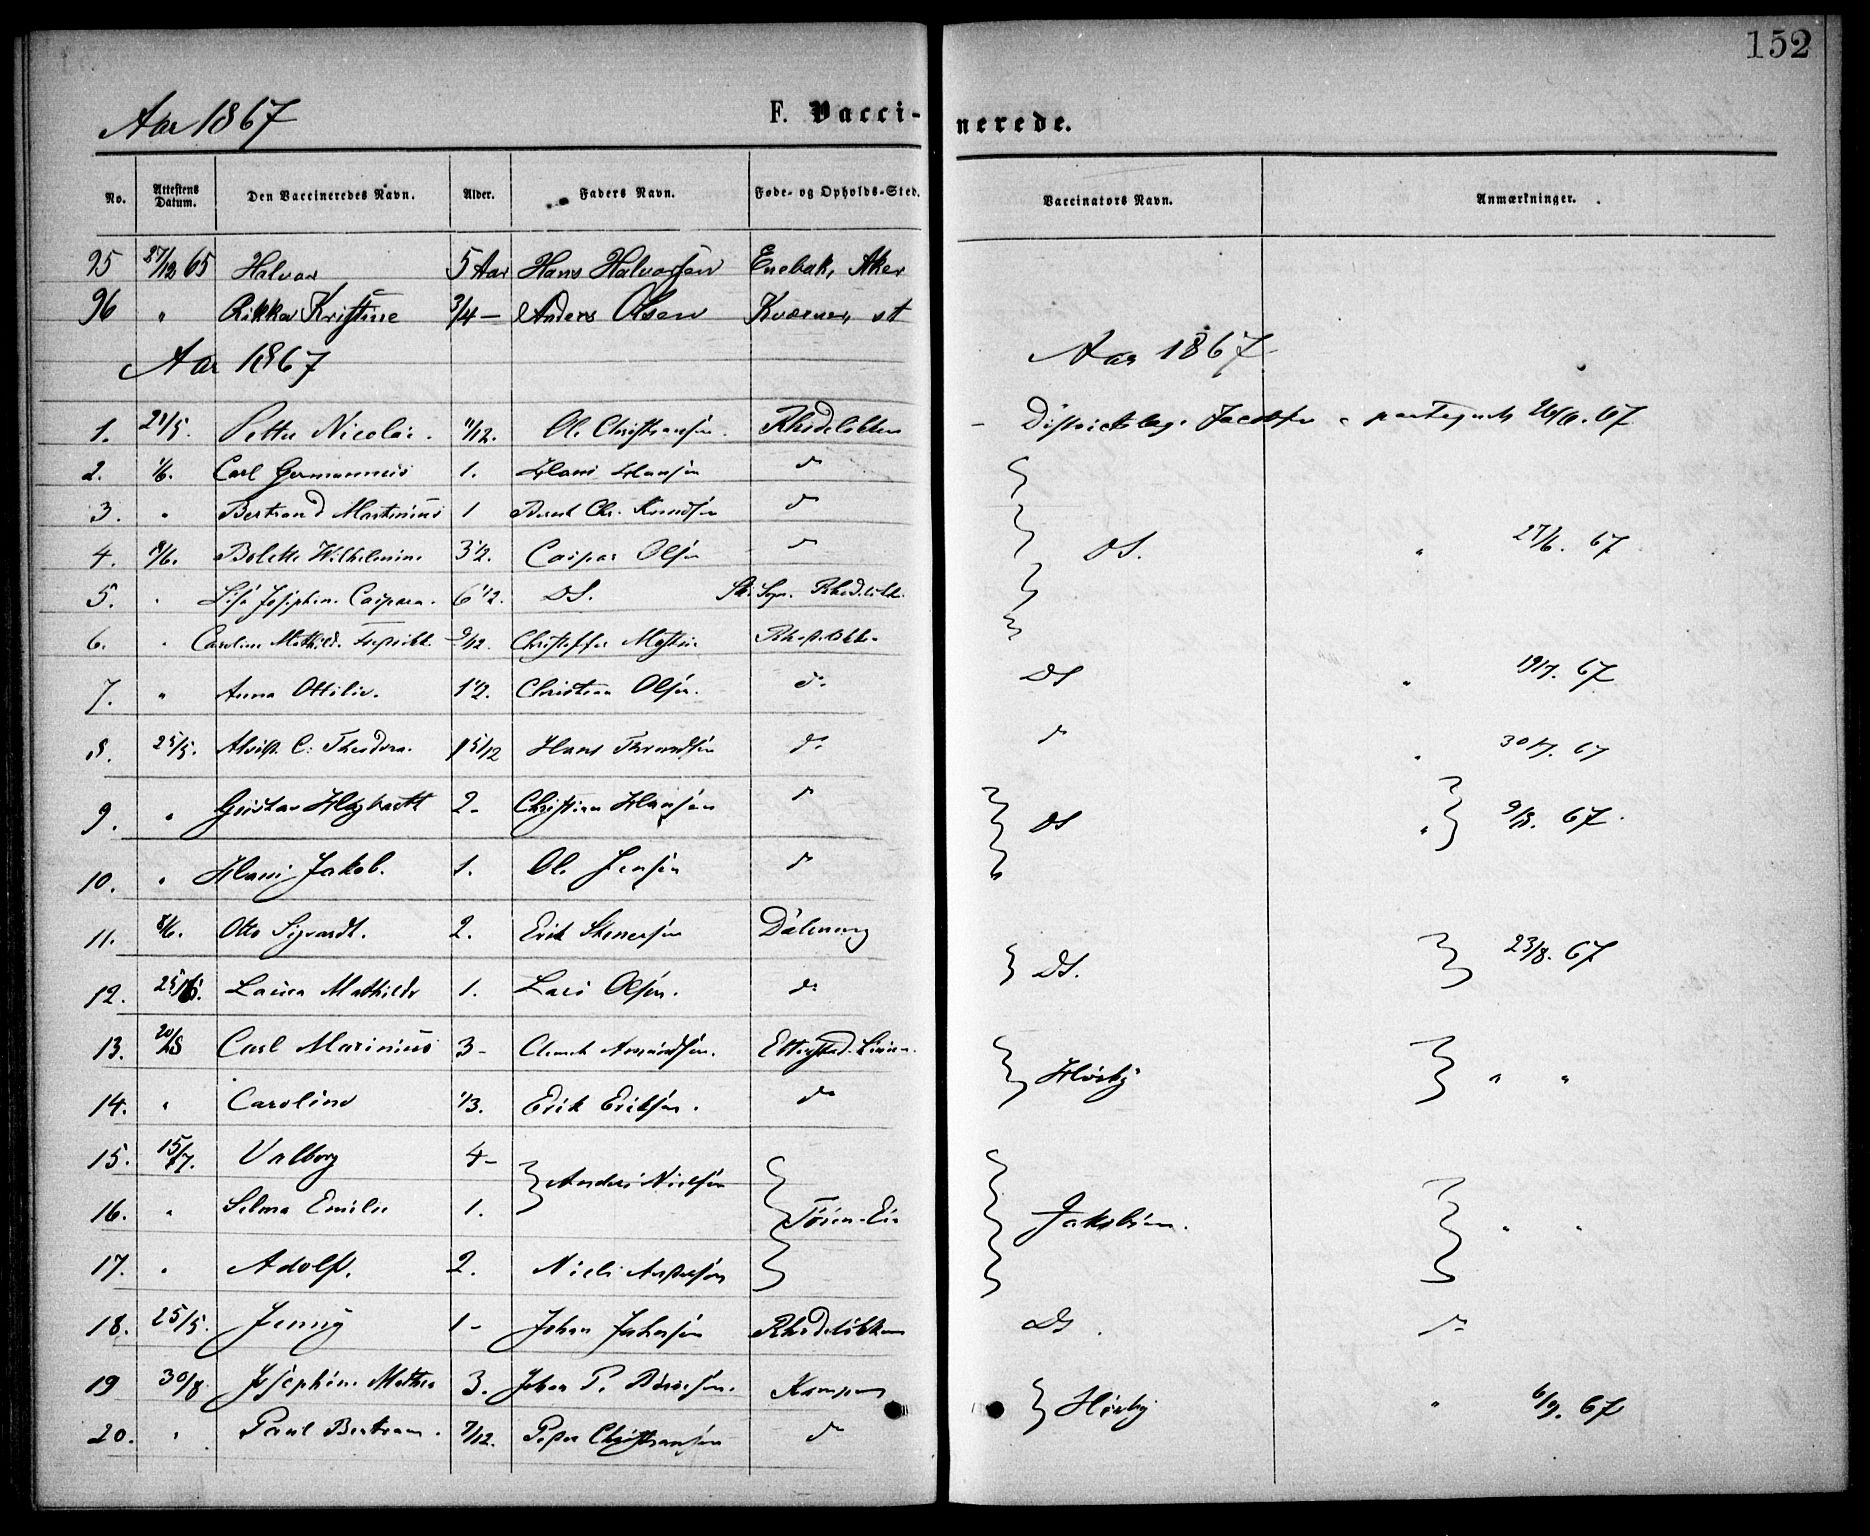 152
Aar 1867 F. Vaccinerede.
No. Attestens Datum. Den Vaccineredes Navn. Alder. Faders Navn. Føde- og Opholds-Sted. Vaccinators Navn. Anmærkninger.
95 27/12 65 Halvor 5 Aar Hans Halvorsen Enebak, Aker
96 " Rikka Kristine 3/4 – Anders Olsen Kværner
Aar 1867 Aar 1867
1. 5. Petter Nicolai. 11/12. Ole Christiansen. Rhodeløkken – Districtslæge 67
2. /6. Carl Germannus 1. Hans Hansen do
3. " Bertrand Martinius 1 Bernt Chr. Knudsen do
4. /6. Bolette Wilhelmine 3 1/2. Caspar Olsen do DS. " 27/6. 67
5. " Josephine Caspara. 6 1/2. DS.
6. " Caroline Mathild. 9/12. Christoffer
7. " Anna Ottilie. 1 1/2. Christian Olsen. do DS " 19/7. 67
8. 25/5. C. Theodora. 1 5/12 Hans do do " 30/7. 67
9. " Gustav Hagbarth 2 – Christian Hansen do DS " 9/8. 67.
10. " Hans Jakob. 1. Ole Jensen do
11. 8/6. Otto Sigvardt. 2. Erik Stenersen Dæleneng DS. 23/8. 67
12. 25/ Laura Mathilde 1. Lars Olsen. do
13. 20/ Carl Marinius 3 – Amundsen. Høiby " "
14. " Caroline 1/3. Erik Eriksen. do
15. 15/7. Valborg 4 – Anders Nielsen
16. " Selma Emilie 1. Jakobsen. " "
17. " Adolf. 2. Niels Andersen
18. 25/5. Jenny 1 – Johan Rhodeløkken DS. do
19 30/8. Josephine Mathea 3. Johan P. Kampen Høiby " 6/9. 67
20. " Paul Bertram. 7/12. Peder Christiansen do